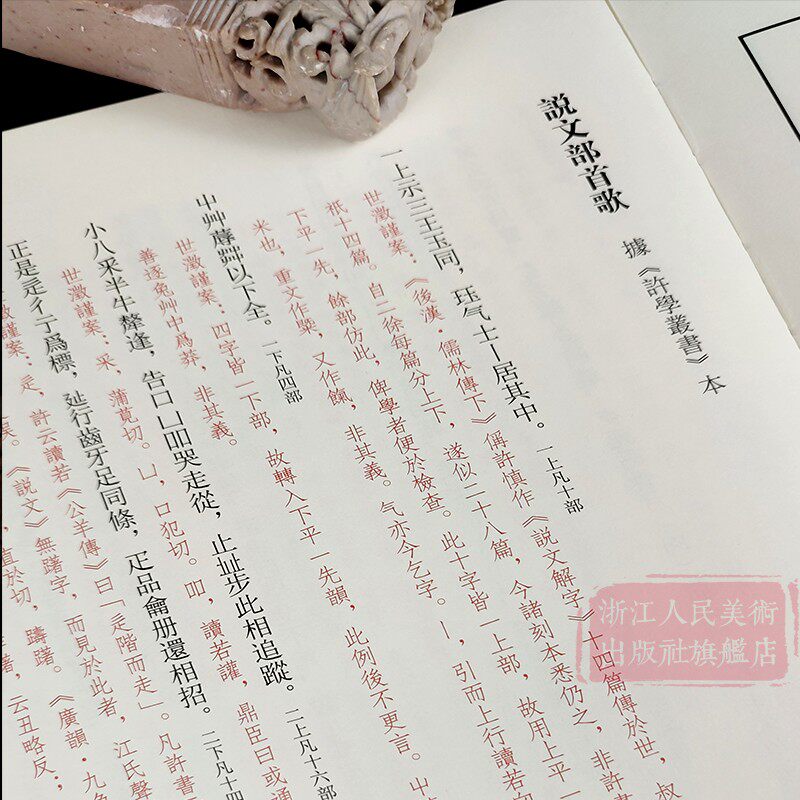 説文部首歌
據《許學叢書》本
一上示三王玉同，珏气士丨居其中。一上凡十部
世澂謹案：《後漢·儒林傳下》偁許慎作《説文解字》十四篇傳於世，叔
祇十四篇。自二徐每篇分上下，遂似二十八篇，今諸刻本悉仍之，非許書
下平一先，餘部仿此，俾學者便於檢查。此十字皆一上部，故用上平一
米也，重文作槩，又作餼，非其義。气亦今乞字。丨，引而上行讀若
屮艸蓐茻以下全。一下凡四部
世澂謹案：四字皆一下部，故轉入下平一先韻，此例後不更言。屮
善逐兔艸中爲莽，非其義。
小八釆半牛犛逢，告口凵吅哭走從，止癶步此相追蹤。二上凡十六部
世澂謹案：釆，蒲莧切。凵，口犯切。吅，讀若讙，鼎臣曰或通
正是辵彳亍爲標，㢟行齒牙足同條，疋品龠册還相招。二下凡十四
世澂謹案：辵，許云讀若《公羊傳》曰「辵階而走」。凡許書
《説文》無躇字，而見於此者，江氏聲
直於切，躊躇。《廣韻·九魚
云丑略反；
浙江人民美術
出版社旗艦店